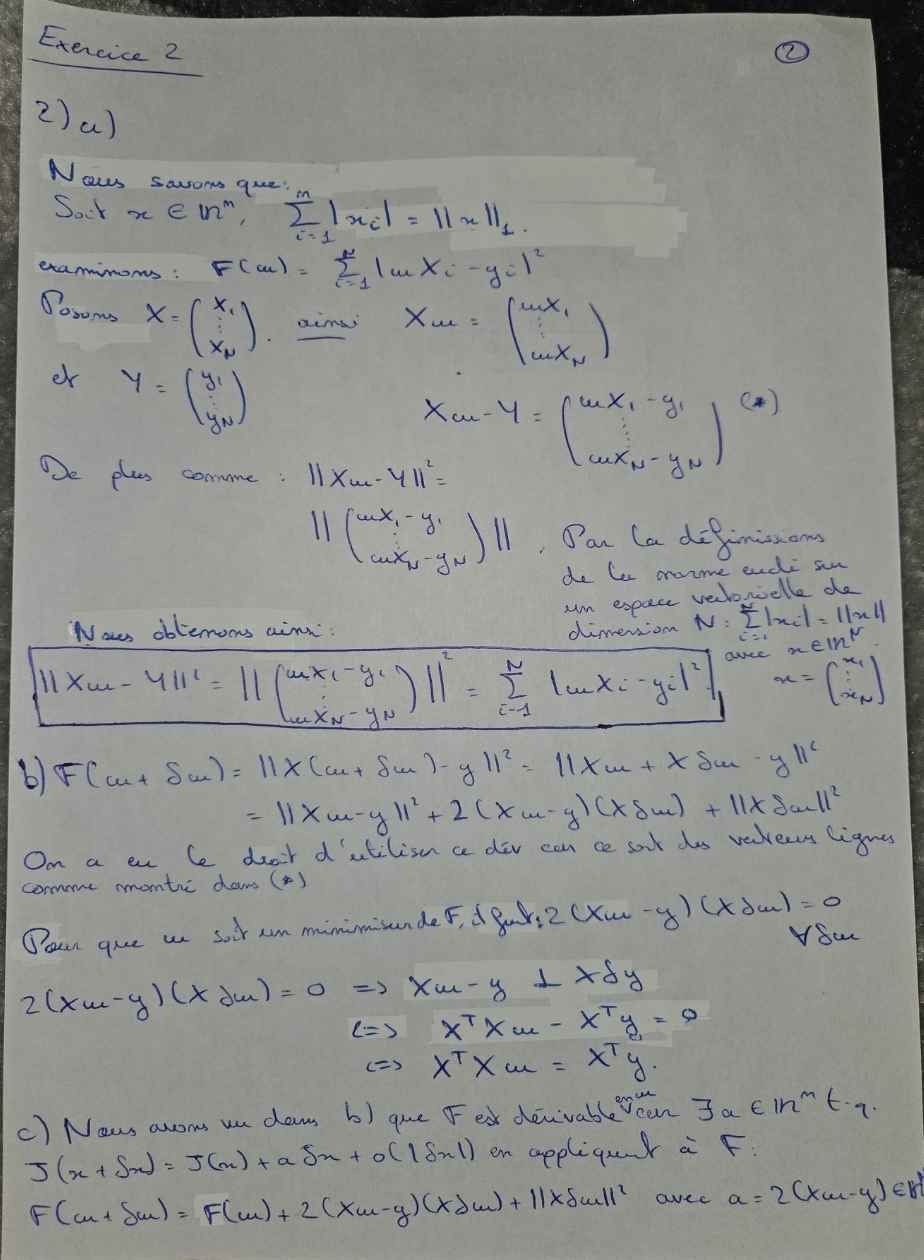 Exercice 2
②
2) a)
Nous savons que:
Soit x ∈ ℝⁿ, ∑_{i=1}^{n} |x_i| = ||x||_1.
examinons : F(u) = ∑_{i=1}^{N} |uX_i - y_i|²
Posons X = (X_1 ⋮ X_N). ainsi Xu = (uX_1 ⋮ uX_N)
et Y = (y_1 ⋮ y_N)
Xu - Y = (uX_1 - y_1 ⋮ uX_N - y_N) (*)
De plus comme : ||Xu - Y||² =
||(uX_1 - y_1 ⋮ uX_N - y_N)||. Par la définissions
de la norme eucli sur
un espace vectorielle de
dimension N : ∑_{i=1}^{N} |x_i| = ||x||
avec x ∈ ℝ^N.
x = (x_1 ⋮ x_N)
Nous obtenons ainsi :
||Xu - Y||² = ||(uX_1 - y_1 ⋮ uX_N - y_N)||² = ∑_{i=1}^{N} |uX_i - y_i|²
b) F(u + δu) = ||X(u + δu) - y||² = ||Xu + Xδu - y||²
= ||Xu - y||² + 2(Xu - y)(Xδu) + ||Xδu||²
On a eu le droit d'utiliser ce dév car ce sont des vecteurs lignes
comme montré dans (*)
Pour que u soit un minimiseur de F, il faut : 2(Xu - y)(Xδu) = 0
∀δu
2(Xu - y)(Xδu) = 0 => Xu - y ⊥ Xδy
<=> XᵀXu - Xᵀy = 0
<=> XᵀXu = Xᵀy.
c) Nous avons vu dans b) que F est dérivable en u car ∃ a ∈ ℝⁿ t.q.
J(x + δx) = J(x) + aδx + o(|δx|) en appliquent à F :
F(u + δu) = F(u) + 2(Xu - y)(Xδu) + ||Xδu||² avec a = 2(Xu - y) ∈ ℝ^N